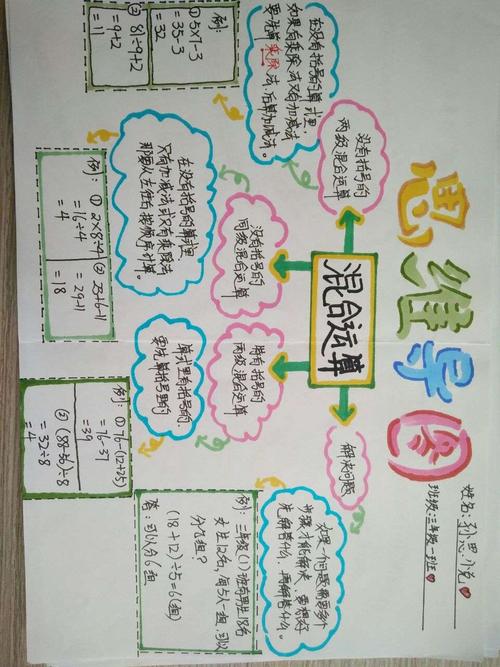 思维导图
姓名:孙思小兔
班级:三年级一班
混合运算
没有括号的
两级混合运算
在没有括号的算式里,
如果有乘除法又有加减法
要先算乘除法,后算加减法。
例:
① 5×7-3
=35-3
=32
② 81÷9+2
=9+2
=11
没有括号的
同级混合运算
在没有括号的算式里
只有加减法或只有乘除法
都要从左往右按顺序计算。
例:① 2×8÷4
=16÷4
=4
② 23+6-11
=29-11
=18
带有括号的
两级混合运算
算式里有括号的,
要先算括号里的
例:① 76-(12+25)
=76-37
=39
② (88-56)÷8
=32÷8
=4
解决问题
如果一个问题需要多个
步骤才能解决,要想好
先解答什么,再解答什么。
例:三年级(1)班有男生18名
女生12名,每5人一组,可以
分几组?
(18+12)÷5=6(组)
答:可以分6组